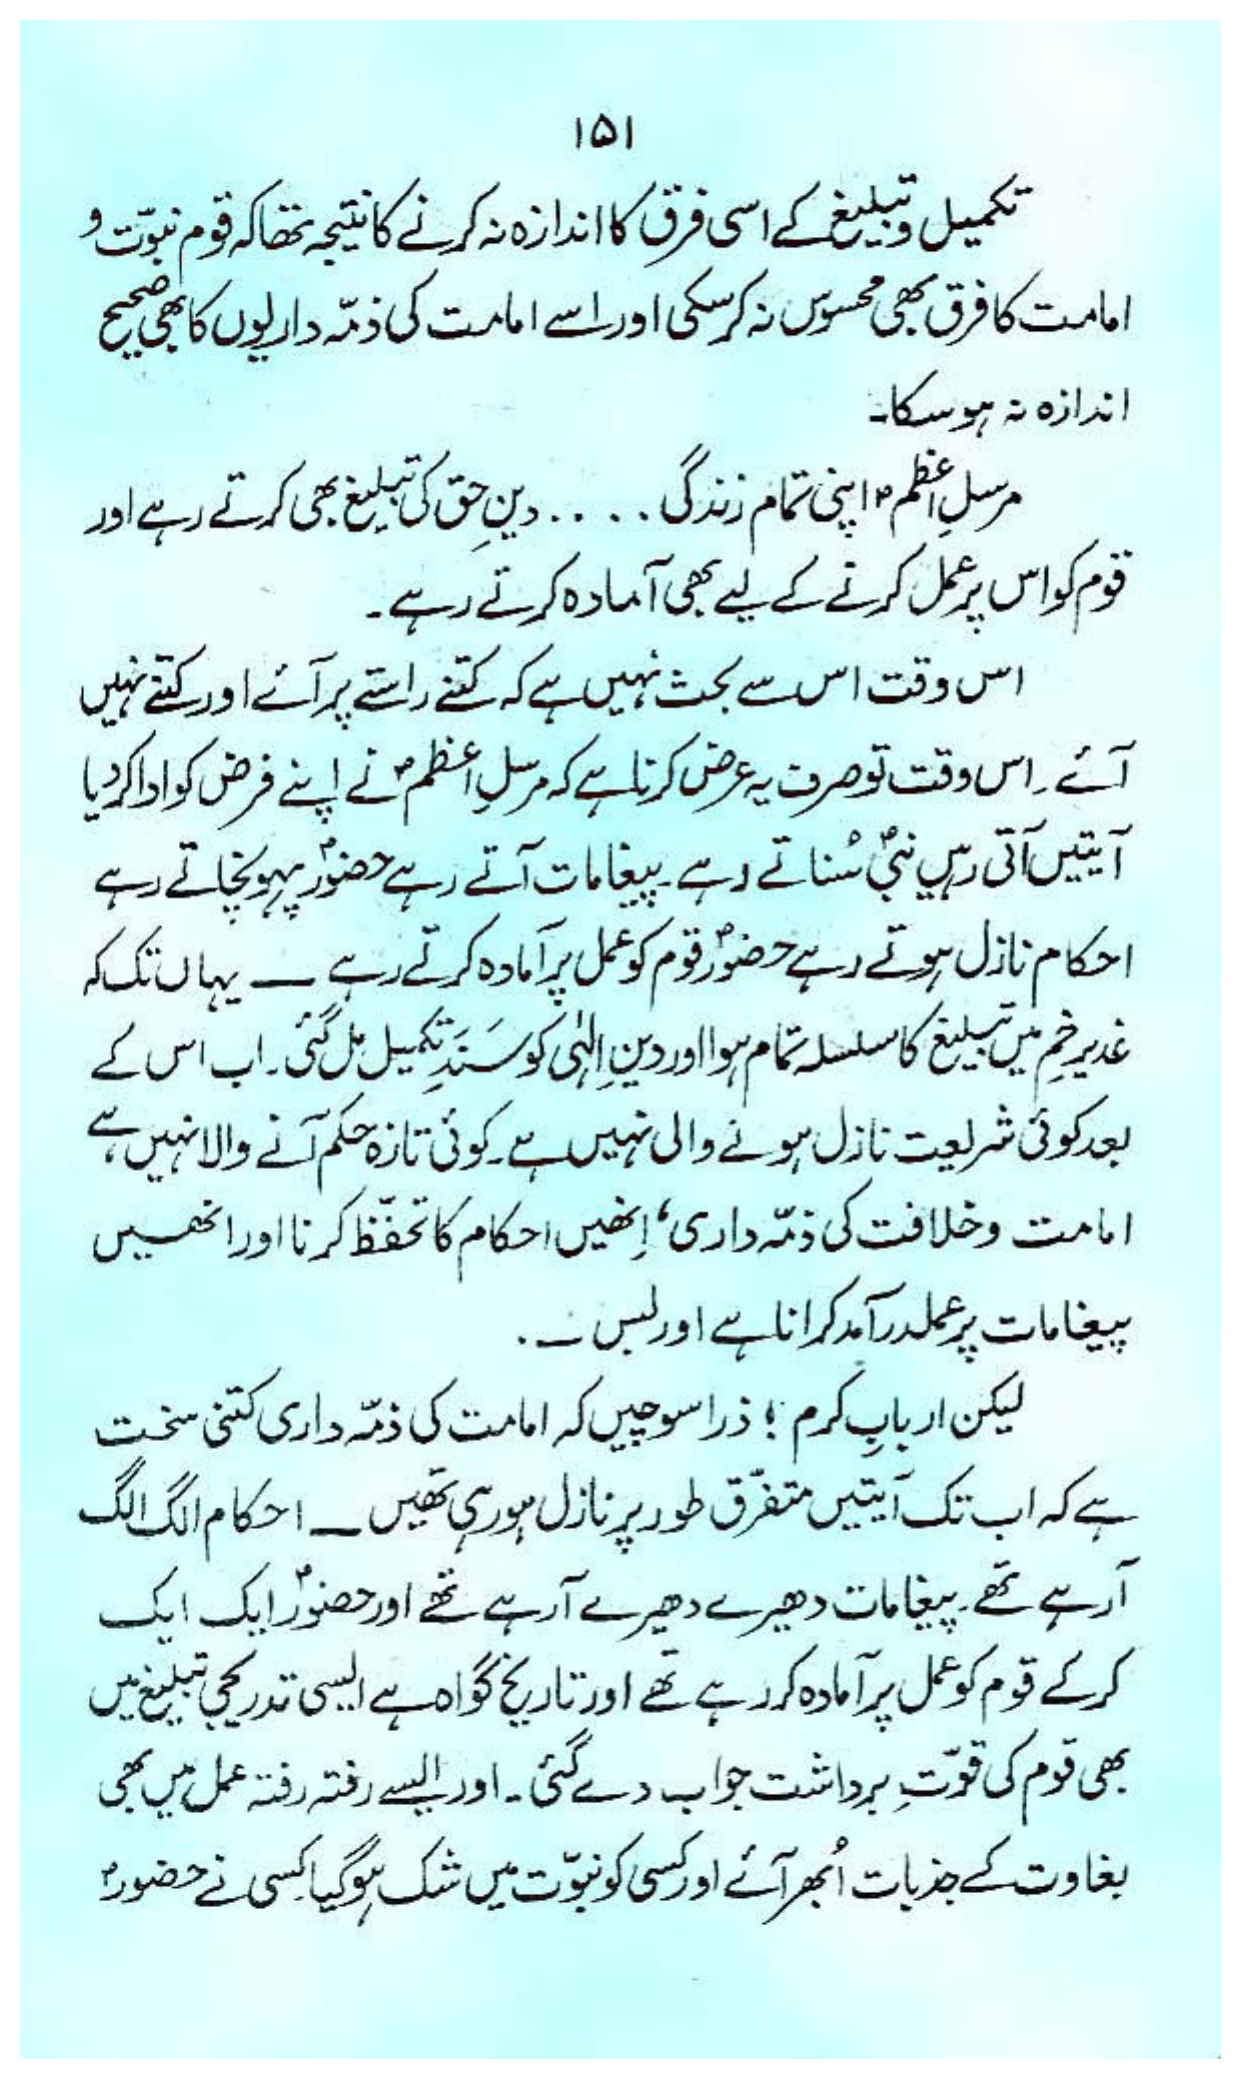 ۱۵۱
تکمیل و تبلیغ کے اسی فرق کا اندازہ نہ کرنے کا نتیجہ تھا کہ قوم نبوّت و
امامت کا فرق بھی محسوس نہ کر سکی اور اسے امامت کی ذمّہ داریوں کا بھی صحیح
اندازہ نہ ہو سکا۔
مرسلِ اعظمؐ اپنی تمام زندگی . . . . دینِ حق کی تبلیغ بھی کرتے رہے اور
قوم کو اس پر عمل کرنے کے لیے بھی آمادہ کرتے رہے۔
اس وقت اس سے بحث نہیں ہے کہ کتنے راستے پر آئے اور کتنے نہیں
آئے۔ اس وقت تو صرف یہ عرض کرنا ہے کہ مرسلِ اعظمؐ نے اپنے فرض کو ادا کر دیا
آیتیں آتی رہیں نبیؐ سُناتے رہے۔ پیغامات آتے رہے حضورؐ پہونچاتے رہے
احکام نازل ہوتے رہے حضورؐ قوم کو عمل پر آمادہ کرتے رہے ــ یہاں تک کہ
غدیرِ خم میں تبلیغ کا سلسلہ تمام ہوا اور دینِ الٰہی کو سَنَدِ تکمیل مل گئی۔ اب اس کے
بعد کوئی شریعت نازل ہونے والی نہیں ہے۔ کوئی تازہ حکم آنے والا نہیں ہے
امامت و خلافت کی ذمّہ داری، اِنھیں احکام کا تحفّظ کرنا اور انھیں
پیغامات پر عملدرآمد کرانا ہے اور بس ــ.
لیکن اربابِ کرم ! ذرا سوچیں کہ امامت کی ذمّہ داری کتنی سخت
ہے کہ اب تک آیتیں متفرّق طور پر نازل ہو رہی تھیں ــ احکام الگ الگ
آرہے تھے۔ پیغامات دھیرے دھیرے آرہے تھے اور حضورؐ ایک ایک
کرکے قوم کو عمل پر آمادہ کر رہے تھے اور تاریخ گواہ ہے ایسی تدریجی تبلیغ میں
بھی قوم کی قوّتِ برداشت جواب دے گئی۔ اور ایسے رفتہ رفتہ عمل میں بھی
بغاوت کے جذبات اُبھر آئے اور کسی کو نبوّت میں شک ہو گیا کسی نے حضورؐ